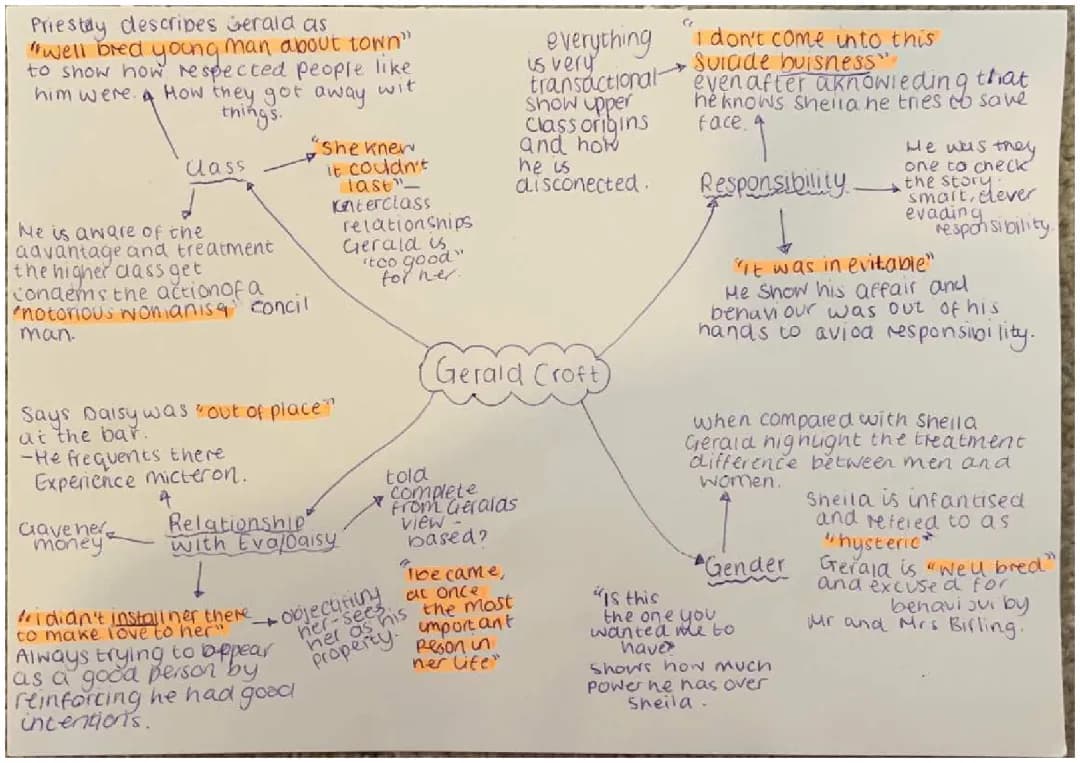 Priestly describes Gerald as
"well bred young man about town"
to show how respected people like
him were. How they got away wit
things.
Class
"She knew
it couldn't
last" -
interclass
relationships
Gerald is
"too good"
for her.
He is aware of the
advantage and treatment
the higher class get
condems the action of a
"notorious womanisq" concil
man.
everything
is very
transactional
show upper
class origins
and how
he is
disconected.
"I don't come into this
suicide buisness"
even after aknowleding that
he knows Sheila he tries to save
face.
Responsibility
He was they
one to check
the story.
smart, clever
evading
responsibility.
"it was inevitable"
He show his affair and
behaviour was out of his
hands to aviod responsibility.
Gerald Croft
Says Daisy was "out of place"
at the bar.
-He frequents there
Experience micteron.
Relationship
with Eva/Daisy
Gave her
money
told
complete
from Geralds
view -
based?
"i didn't install her there
to make love to her"
Always trying to appear
as a good person by
reinforcing he had good
intentions.
objectifing
her-sees
her as his
property.
"I became,
at once
the most
important
person in
her life"
Gender
when compared with Sheila
Gerald highlight the treatment
difference between men and
women.
Sheila is infantised
and refered to as
"hysteric"
Gerald is "well bred"
and excused for
behaviour by
Mr and Mrs Birling.
"Is this
the one you
wanted me to
have"
shows how much
power he has over
Sheila.